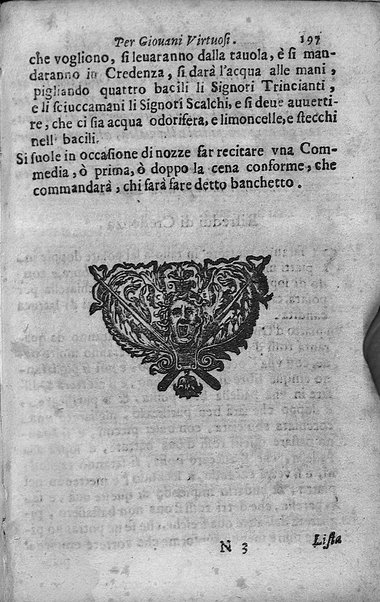 Per Giovani Virtuosi. 197
che vogliono, si leuaranno dalla tauola, è si man-
daranno in Credenza, si darà l'acqua alle mani,
pigliando quattro bacili li Signori Trincianti,
e li sciuccamani li Signori Scalchi, e si deue auuerti-
re, che ci sia acqua odorifera, e limoncelle, e stecchi
nell' bacili.
Si suole in occasione di nozze far recitare vna Com-
media, ò prima, ò doppo la cena conforme, che
commandarà, chi sarà fare detto banchetto.
N 3 Lista